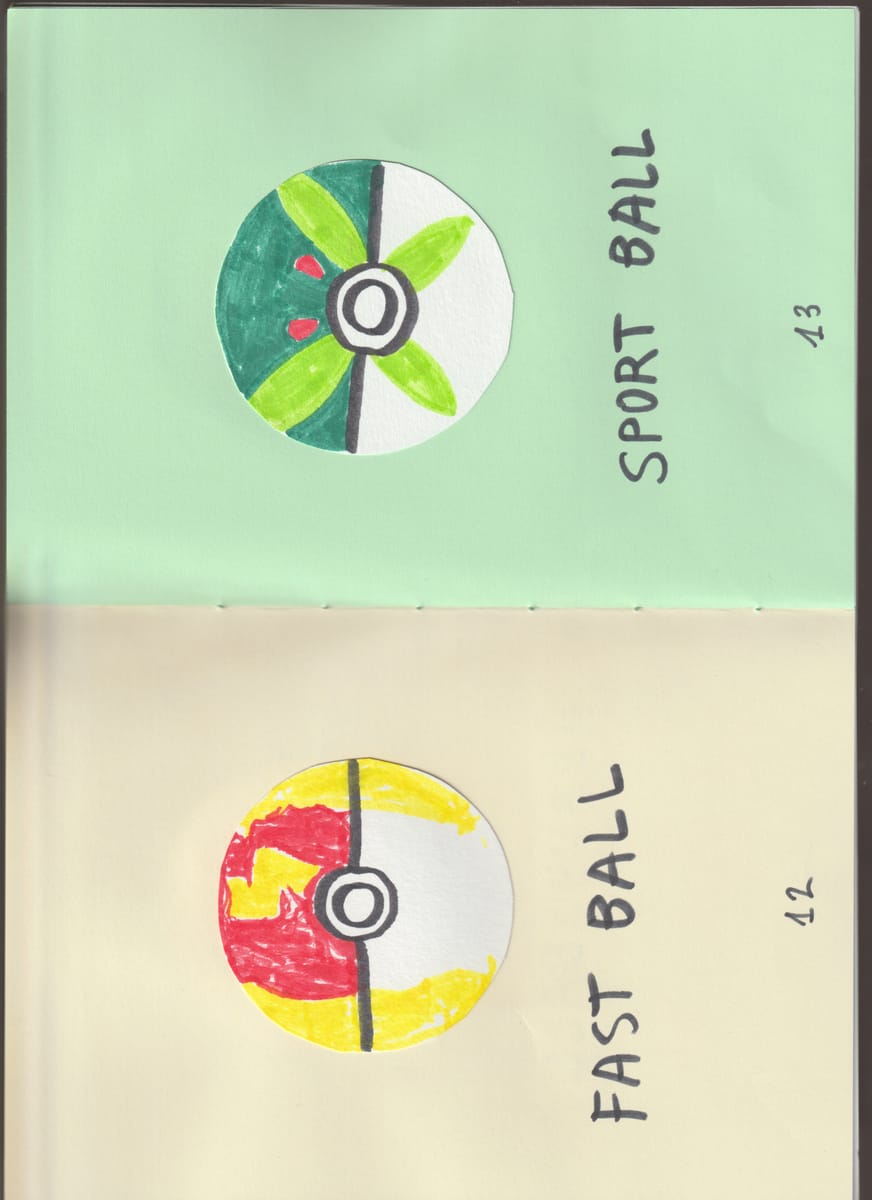 FAST BALL
12
SPORT BALL
13